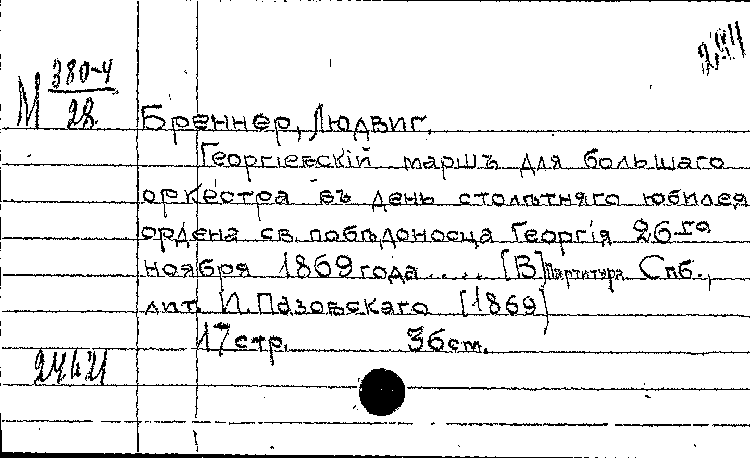 М 380-4
28
Бреннер, Людвиг.
Георгіевскій маршъ для большаго
оркестра въ день столѣтняго юбилея
ордена св. побѣдоносца Георгія 26го
ноября 1869 года..... [В] Партитура. Спб.,
лит. И. Пазовскаго [1869]
17 стр. 36 ст.